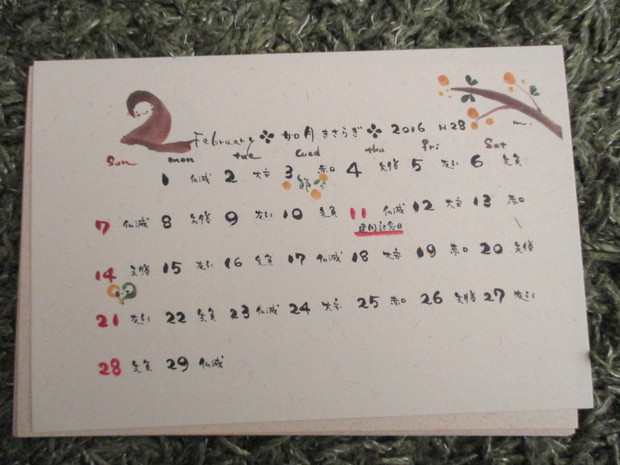 2 February 如月 きさらぎ 2016 H28
Sun mon tue wed thu Fri Sat
1 仏滅 2 大安 3 赤口 4 先勝 5 友引 6 先負
節分
7 仏滅 8 先勝 9 友引 10 先負 11 仏滅 12 大安 13 赤口
建国記念日
14 先勝 15 友引 16 先負 17 仏滅 18 大安 19 赤口 20 先勝
21 友引 22 先負 23 仏滅 24 大安 25 赤口 26 先勝 27 友引
28 先負 29 仏滅